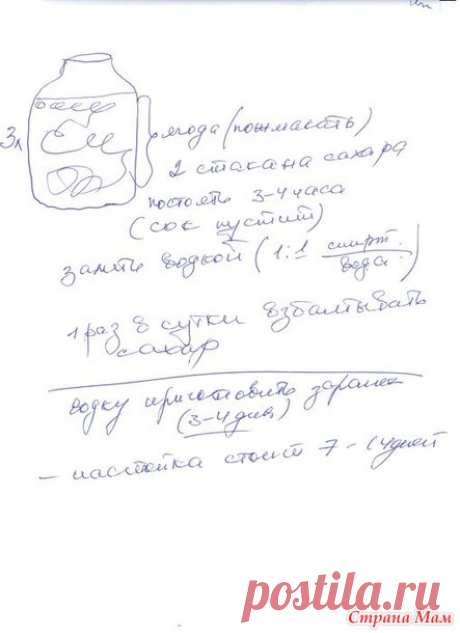 3л
ягода (пожмакать)
2 стакана сахара
постоять 3-4 часа
(сок пустит)
залить водкой (1:1 спирт. / вода)
1 раз в сутки взбалтывать
сахар
водку приготовить заранее
(3-4 дня)
- настойка стоит 7-14 дней
postila.ru
Страна Мам